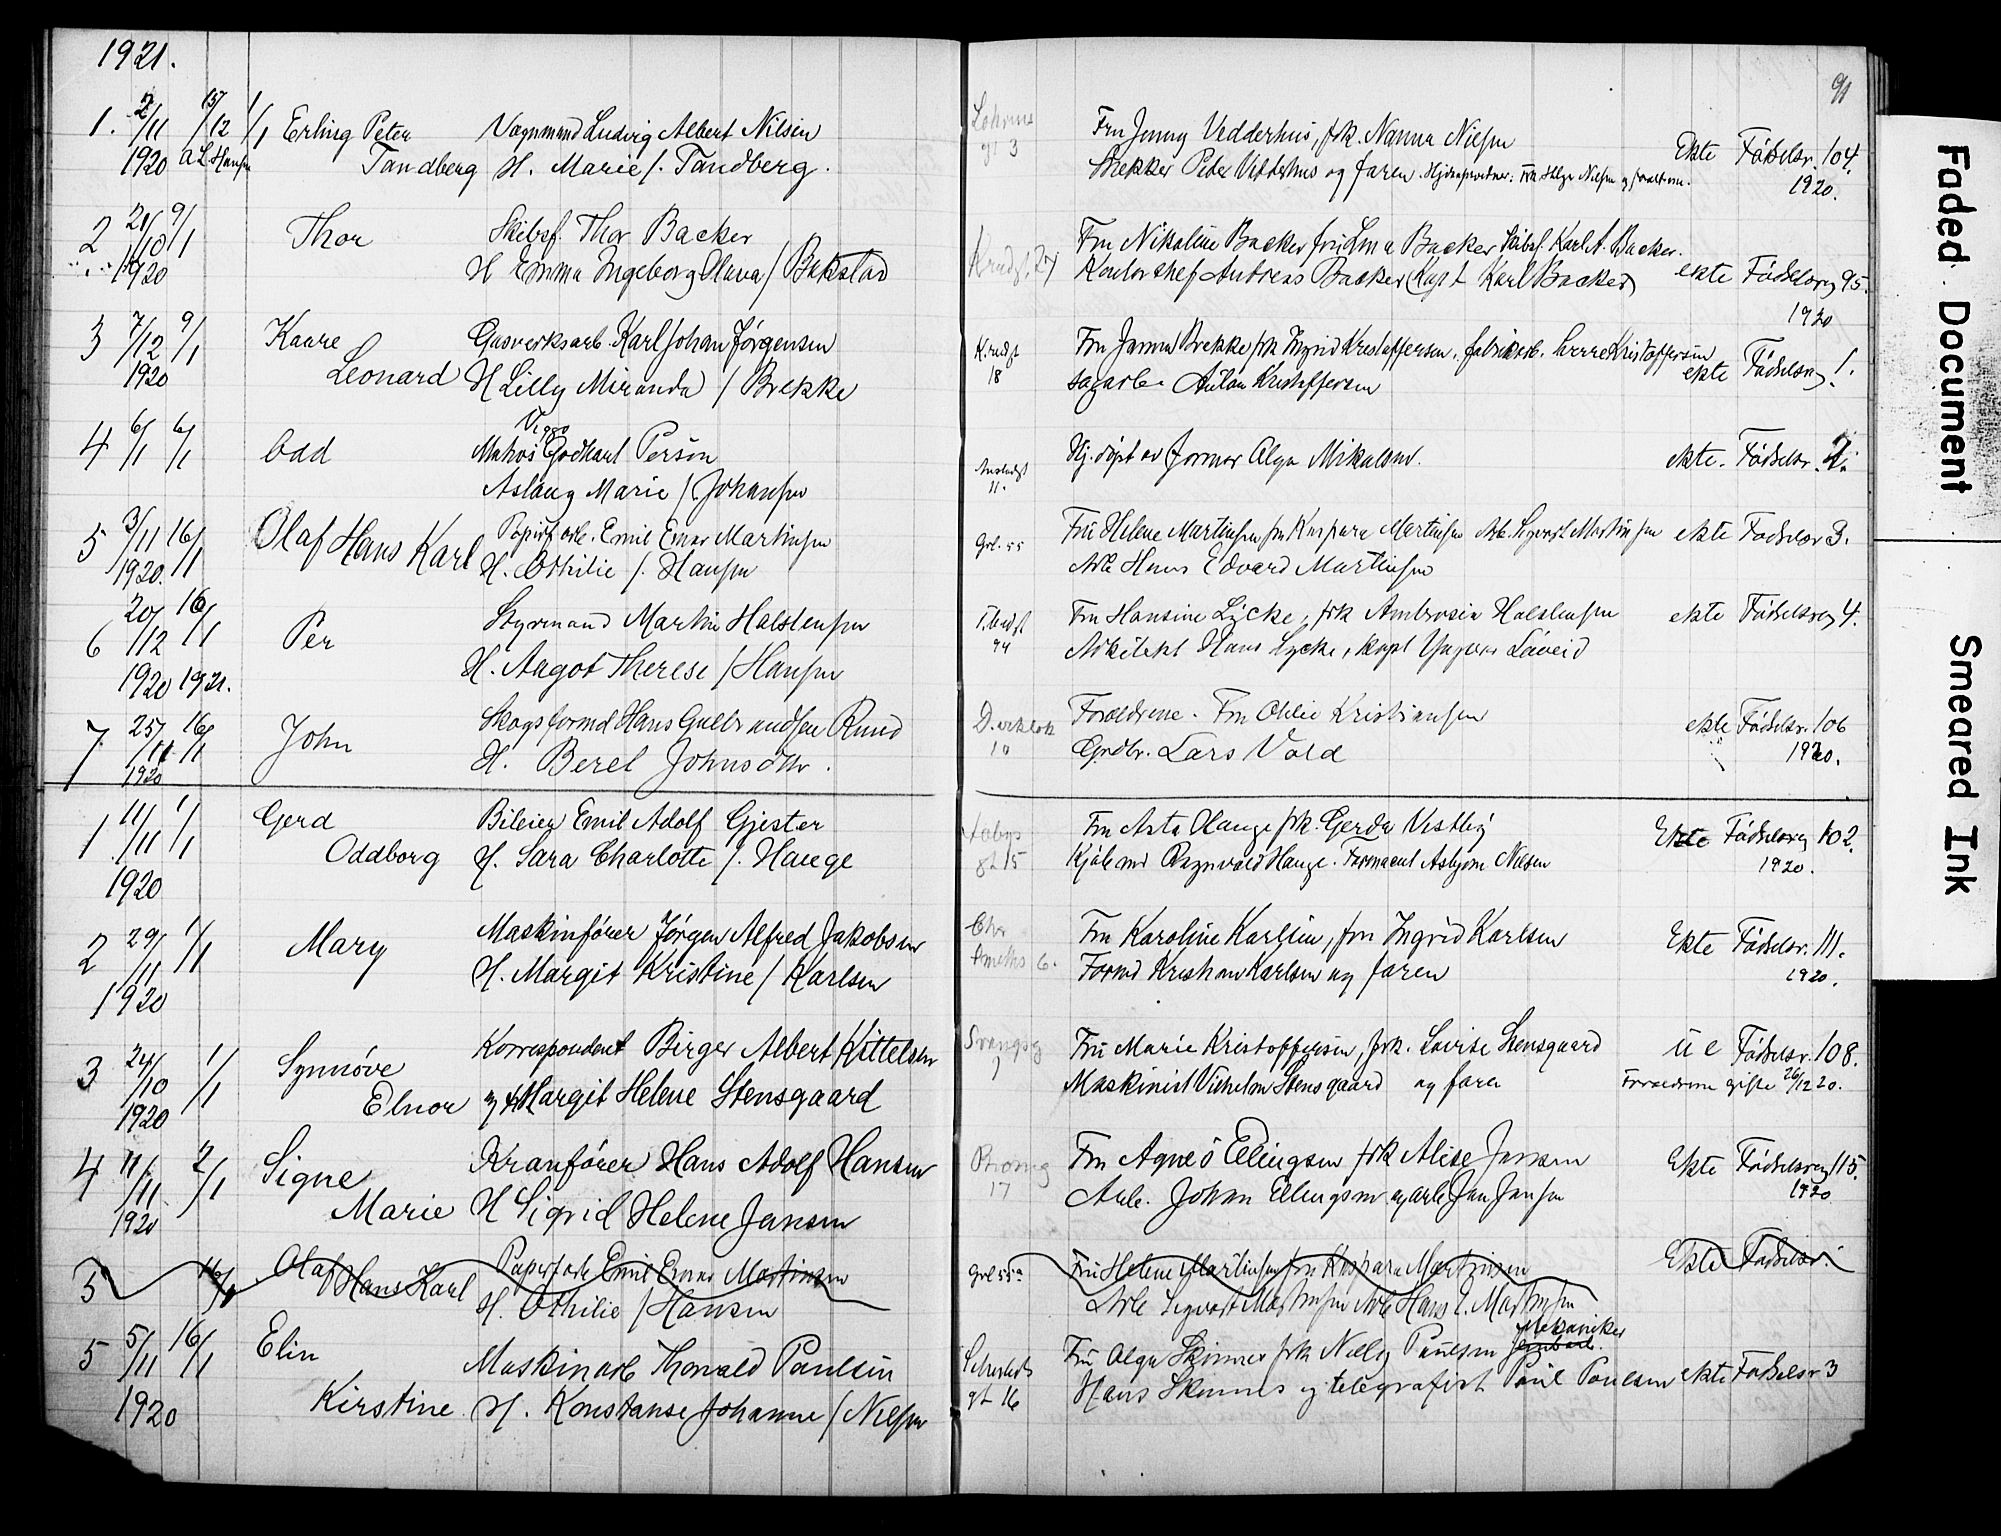 1921.
91
1. 2/11 15/12 1/1 Erling Peter Vognmand Ludvig Albert Nilsen
1920 A L Hansen Tandberg H. Marie /. Tandberg.
gt 3 Fru Jenny Vedderhus, frk. Nanna Nielsen
Peder Vedderhus og faren. Ekte Fødselsr. 104.
1920.
2 21/10 9/1 Thor Skibsf. Thor Backer
1920 H Emma Ingeborg / Bakstad
27 Fru Nikoline Backer fru Backer Skibsf. Karl A. Backer.
Kontorchef Andreas Backer Kapt Karl Backer ekte Fødselsreg 95.
1920
3 7/12 9/1 Kaare Gasverksarb. Karl Johan Jørgensen
1920 Leonard H Lilly Miranda / Brekke
18 Fru Brekke frk Ingrid Kristoffersen, fabrikarb. Kristoffersen
sagarb. Anton Kristoffersen ekte Fødselsreg 1.
4 6/1 6/1 Odd Person
Aslaug Marie / Johansen
11. Hj. døpt av Jormor Olga Mikalsen. ekte. Fødselsr. 2.
5 3/11 16/1 Olaf Hans Karl Papirfarb. Emil Einar Martinsen
1920. H. Othilie /. Hansen
Grl. 55 Fru Helene Martinsen fru Kaspara Martinsen Arb. Sigvart Martinsen ekte Fødselsr 3.
Arb Hans Edvard Martinsen
6 20/12 16/1 Per Styrmand Martin Halstensen
1920 1921. H. Aagot Therese / Hansen
94 Fru Hansine Lycke, frk Ambrosia Halstensen ekte Fødselsreg 4.
Arkitekt Hans Lycke, kapt Yngvar
7 25/11 16/1 John Skogsformd Hans Gulbrandsen Ruud
1920 H. Berel Johnsdtr.
10 Forældrene. Fru Othlie Kristiansen ekte Fødselsr. 106
Grdbr. Lars Vold 1920.
1 11/11 1/1 Gerd Bileier Emil Adolf Gjester
1920 Oddborg H. Sara Charlotte /. Hauge
gt 15 Fru Asta Hauge frk. Gerda Vestby Ekte Fødselsreg 102.
Ragnvald Hauge. Farmaceut Asbjørn Nilsen 1920.
2 29/11 1/1 Mary Maskinfører Jørgen Alfred Jakobsen
1920 H. Margit Kristine / Karlsen
Chr
Smeths 6. Fru Karoline Karlsen, fru Ingrid Karlsen Ekte Fødselsr. 111.
Formd Kristian Karlsen og faren 1920.
3 24/10 1/1 Synnøve Korrespondent Birger Albert Kittelsen
1920 Elnor og Margit Helene Stensgaard
1 Fru Marie Kristoffersen, frk. Lovise Stensgaard u e Fødselsr. 108.
Maskinist Vilhelm Stensgaard og faren Forældrene gifte 26/12 20.
4 11/11 2/1 Signe Kranfører Hans Adolf Hansen
1920 Marie H Sigrid Helene Jansen
17 Fru Agnes Ellingsen frk Alise Jansen Ekte Fødselsreg 115.
Arb. Johan Ellingsen og arb Jan Jansen 1920
5 16/1 Olaf Hans Karl Papirfarb Emil Einar Martinsen
H. Othilie / Hansen
Grl 55a Fru Helene Martinsen fru Kaspara Martinsen Ekte Fødselsr.
Arb Sigvart Martinsen Arb Hans E. Martinsen
5 5/11 16/1 Elin Maskinarb Thorvald Paulsen
1920 Kirstine H. Konstanse Johanne / Nilsen
gt 16 Fru Olga Skinnes frk Nelly Paulsen Mekaniker
Hans Skinnes og telegrafist Paul Paulsen ekte Fødselsr 3
Faded Document
Smeared Ink